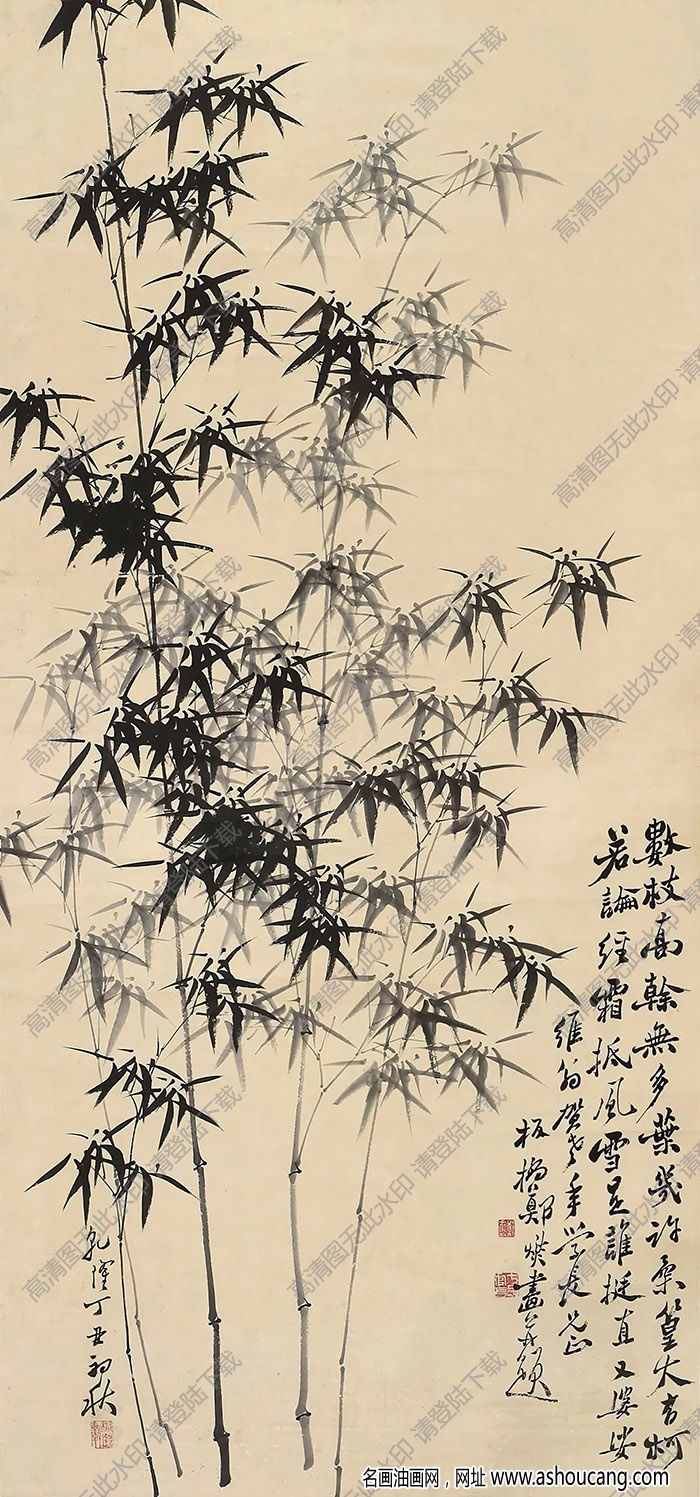 數枝高榦無多葉幾許柔篁大有柯
若論經霜抵風雪是誰挺直又婆娑
維翁賀老年學長兄正
板橋鄭燮畫并題
乾隆丁丑初秋
高清图无此水印 请登陆下载
名画油画网，网址 www.ashoucang.com